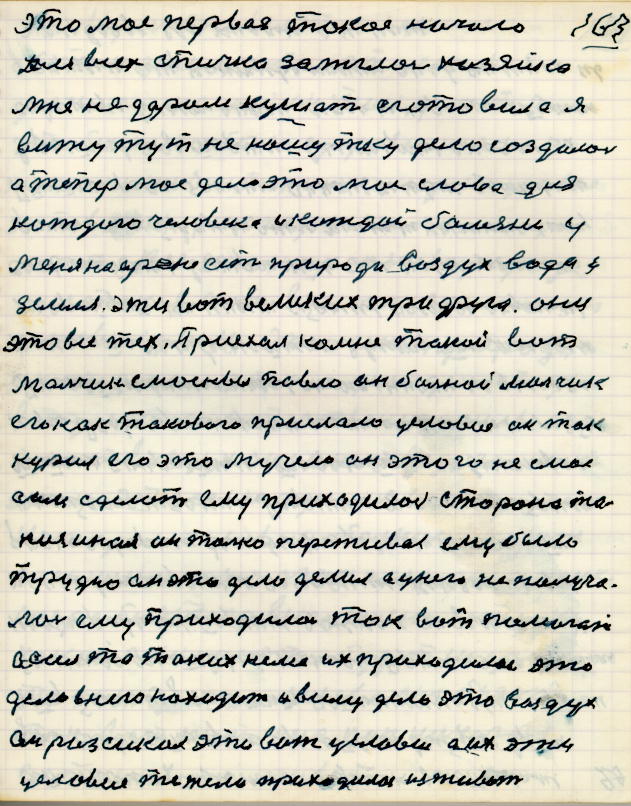 это мое первая такое начало {6}
для всех спичка зажглас хозяйка
мне не даром кушат сготовила я
вижу тут не нашутку дело создалос
а тепер мое дело это мое слова для
каждого человека и каждой болезни у
меня на арене стит природа воздух вода и
земля. эти вот великих три друга. они
это все тех. Приехал комне такой вот
малчик смосквы павло он балной малчик
его как такового прислало условие он так
курил его это мучело он этого не смог
сам сделат ему приходилос сторона та-
кая иная он толко переживал ему было
трудно он это дело делал а унего не получа-
лос ему приходилос так вот помогат
если то таких нема их приходилос это
дело внего находит ввиду дело это воздух
он разсикал это вот условие а их эти
условие тежело приходилос изживат